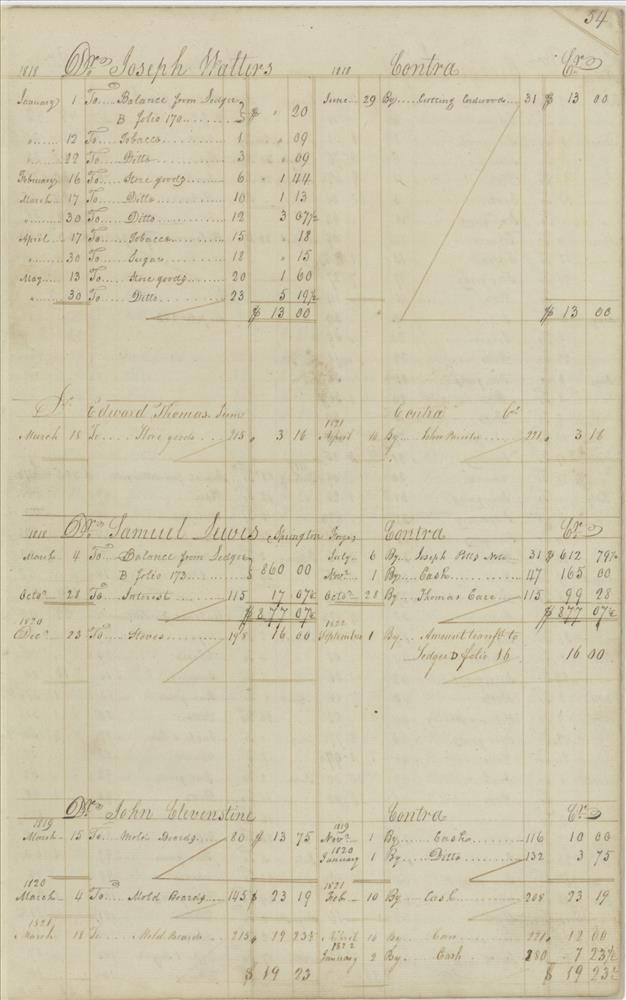 54
1818 Dr. Joseph Walters 1818 Contra Cr.
January 1 To Balance from Ledger B folio 170 $ " 20 June 29 By cutting Cordwood 31 $ 13 00
" 12 To Tobacco 1 " 09
" 22 To Ditto 3 " 09
February 16 To Store goods 6 1 44
March 17 To Ditto 10 1 13
" 30 To Ditto 12 3 07½
April 17 To Tobacco 15 " 18
" 30 To Sugar 18 " 15
May 13 To Store goods 20 1 60
" 30 To Ditto 23 5 19½
$ 13 00 $ 13 00
Dr. Edward Thomas Junr Contra Cr
1821
March 18 To Store goods 215 " 3 16 April 16 By 221 " 3 16
1818 Dr. Samuel Lewis Springton Forges Contra Cr.
March 4 To Balance from Ledger July 6 By Joseph Potts Note 31 $ 612 79½
B folio 173 $ 860 00 Novr 1 By Cash 47 165 00
Octor 28 To Interest 115 17 07½ Octor 28 By Thomas 115 99 28
$ 877 07½ $ 877 07½
1820 1822
Decr 23 To Stoves 198 16 00 September 1 By Amount transfd to
Ledger D folio 16 16 00
Dr. John Clevenstine Contra Cr.
1819 1819
March 15 To Mold Boards 80 $ 13 75 Novr 1 By Cash 116 10 00
1820
January 1 By Ditto 132 3 75
1820 1821
March 4 To Mold Boards 145 $ 23 19 Feb 10 By Cash 208 23 19
1821
March 18 To Mold Boards 215 " 19 23½ April 16 By 221 " 12 00
1822
January 2 By Cash 280 7 23½
$ 19 23 $ 19 23½